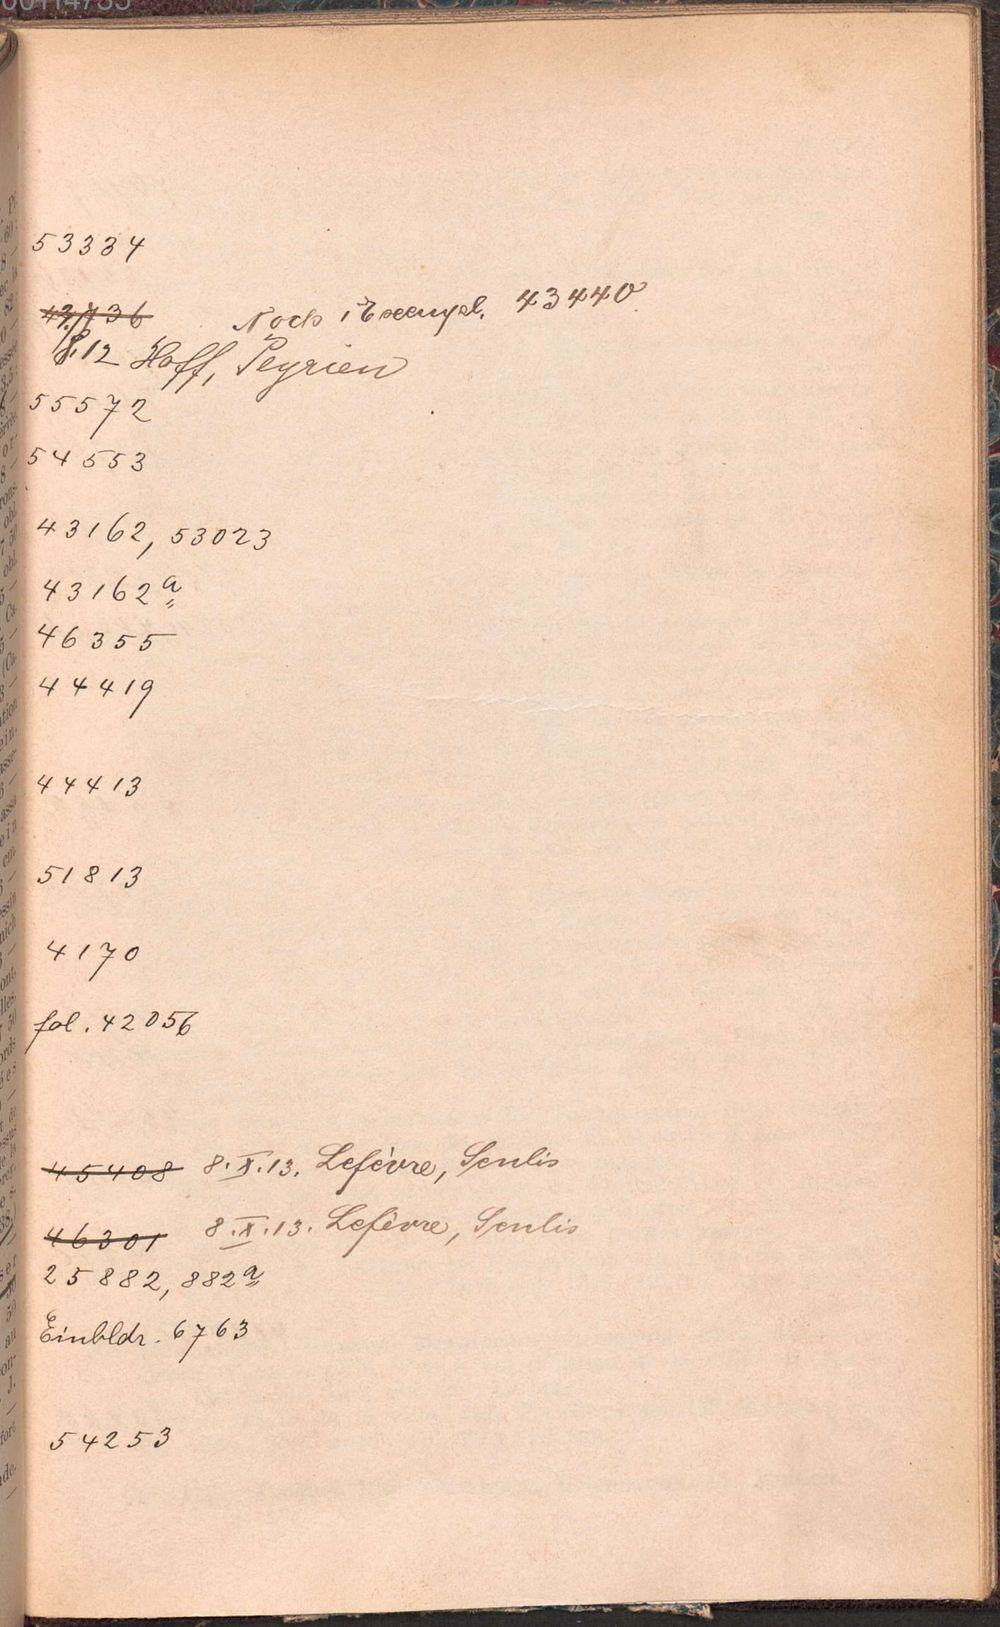 53334
43136 Noch 1 Exempl. 43440
8.12 Hoff, Peyrieu
55572
54553
43162, 53023
43162a
46355
44419
44413
51813
4170
fol. 42056
45408 8.X.13. Lefèvre, Senlis
46301 8.X.13. Lefèvre, Senlis
25882, 882a
Einbldr. 6763
54253